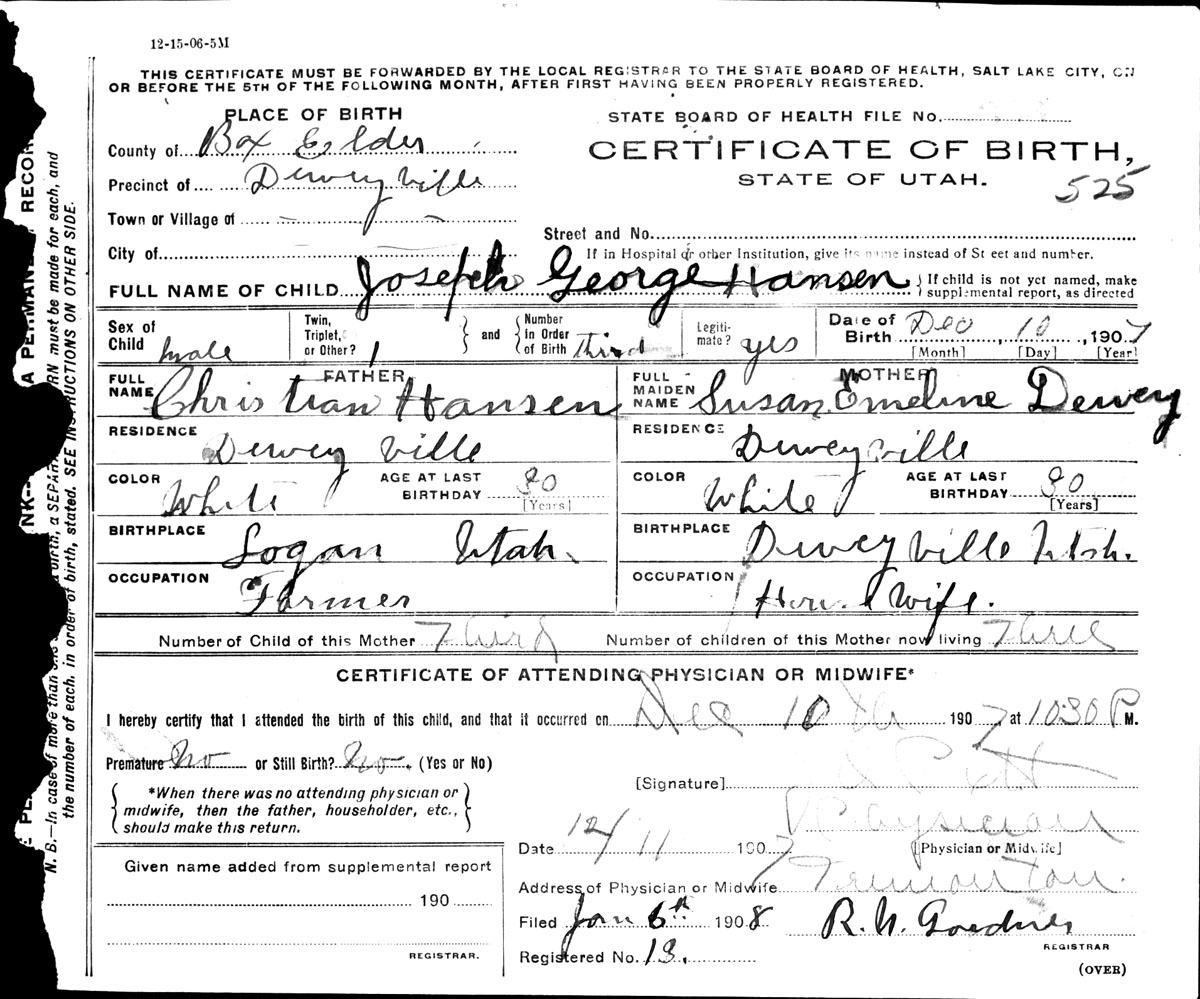 12-15-06-5M
THIS CERTIFICATE MUST BE FORWARDED BY THE LOCAL REGISTRAR TO THE STATE BOARD OF HEALTH, SALT LAKE CITY, ON
OR BEFORE THE 5TH OF THE FOLLOWING MONTH, AFTER FIRST HAVING BEEN PROPERLY REGISTERED.
PLACE OF BIRTH
STATE BOARD OF HEALTH FILE No.
County of Box Elder
CERTIFICATE OF BIRTH,
Precinct of Deweyville
STATE OF UTAH.
525
Town or Village of
Street and No.
City of
If in Hospital or other Institution, give its name instead of Street and number.
FULL NAME OF CHILD Joseph George Hansen
If child is not yet named, make
supplemental report, as directed
Sex of Child male
Twin, Triplet, or Other? 1
and
Number in Order of Birth third
Legitimate? yes
Date of Birth Dec 10, 1907
[Month] [Day] [Year]
FATHER
FULL NAME Christian Hansen
MOTHER
FULL MAIDEN NAME Susan Emeline Dewey
RESIDENCE Deweyville
RESIDENCE Deweyville
COLOR White
AGE AT LAST BIRTHDAY 30
[Years]
COLOR White
AGE AT LAST BIRTHDAY 30
[Years]
BIRTHPLACE Logan Utah.
BIRTHPLACE Deweyville Utah.
OCCUPATION Farmer
OCCUPATION House Wife.
Number of Child of this Mother Third
Number of children of this Mother now living Three
CERTIFICATE OF ATTENDING PHYSICIAN OR MIDWIFE*
I hereby certify that I attended the birth of this child, and that it occurred on Dec 10th 1907 at 1030 P M.
Premature No or Still Birth? No. (Yes or No)
[Signature]
*When there was no attending physician or
midwife, then the father, householder, etc.,
should make this return.
Physician
Date 12/11 1907
[Physician or Midwife]
Given name added from supplemental report
190
REGISTRAR.
Address of Physician or Midwife Tremonton.
Filed Jan 6th 1908
R. N. Gardner
REGISTRAR
Registered No. 13.
(OVER)
N. B.—In case of more than one birth, a SEPARATE RETURN must be made for each, and
the number of each, in order of birth, stated. SEE INSTRUCTIONS ON OTHER SIDE.